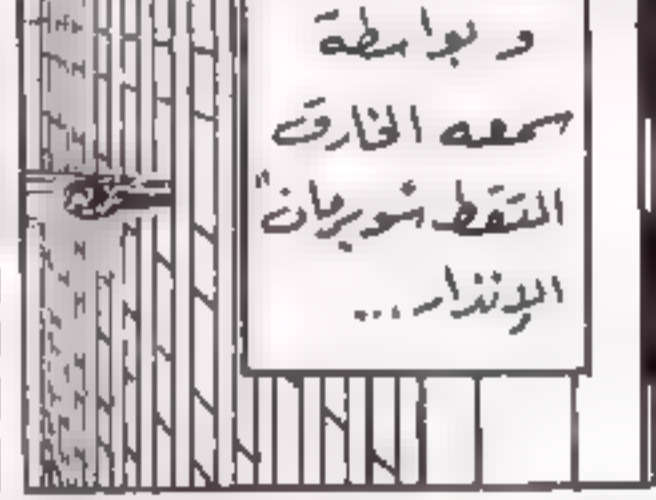 و بواسطة
سمعه الخارق
التقط سوبرمان"
الإنذار...